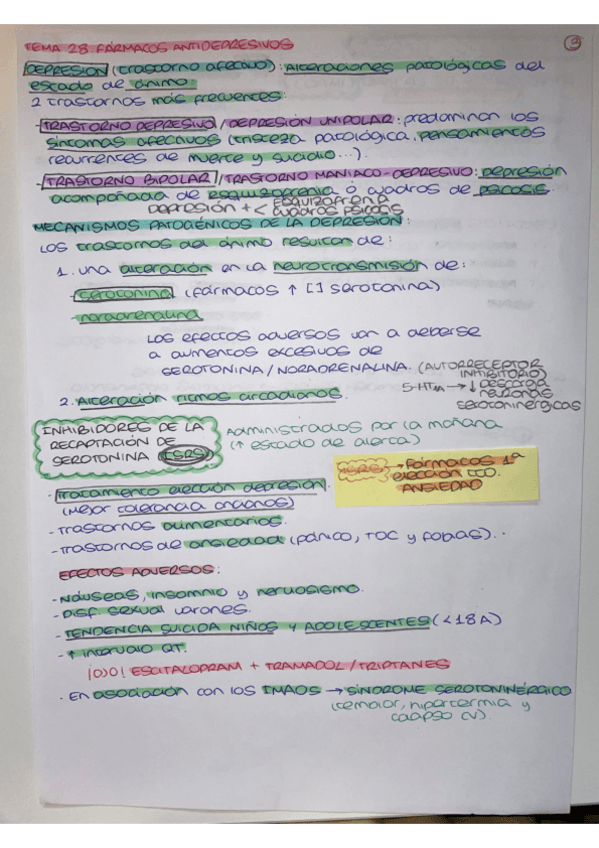 3
TEMA 28. FÁRMACOS ANTIDEPRESIVOS
DEPRESIÓN (trastorno afectivo): Alteraciones patológicas del
estado de ánimo.
2 trastornos más frecuentes:
- TRASTORNO DEPRESIVO / DEPRESIÓN UNIPOLAR: predominan los
síntomas afectivos (tristeza patológica, pensamientos
recurrentes de muerte y suicidio...).
- TRASTORNO BIPOLAR / TRASTORNO MANIACO-DEPRESIVO: depresión
acompañada de esquizofrenia o cuadros de psicosis.
Depresión + < esquizofrenia
cuadros psicosis
MECANISMOS PATOGÉNICOS DE LA DEPRESIÓN:
Los trastornos del ánimo resultan de:
1. una alteración en la neurotransmisión de:
- serotonina (fármacos ↑ [ ] serotonina)
- noradrenalina
Los efectos adversos van a deberse
a aumentos excesivos de
SEROTONINA / NORADRENALINA. (AUTORRECEPTOR
INHIBITORIO)
5-HT1A → ↓ descarga
neuronas
serotoninérgicas
2. Alteración ritmos circadianos.
INHIBIDORES DE LA
RECAPTACIÓN DE
SEROTONINA (ISRS)
Administrados por la mañana
(↑ estado de alerta)
ISRS → Fármacos 1ª
elección tto.
ANSIEDAD
- Tratamiento elección depresión
(Mejor tolerancia ancianos)
- Trastornos alimentarios.
- Trastornos de ansiedad (pánico, TOC y fobias).
EFECTOS ADVERSOS:
- Náuseas, insomnio y nerviosismo.
- Disf. sexual varones.
- TENDENCIA SUICIDA NIÑOS Y ADOLESCENTES (<18A)
- ↑ intervalo QT.
¡OJO! ESCITALOPRAM + TRAMADOL / TRIPTANES
· En asociación con los IMAOS → SÍNDROME SEROTONINÉRGICO
(temblor, hipertermia y
colapso CV).